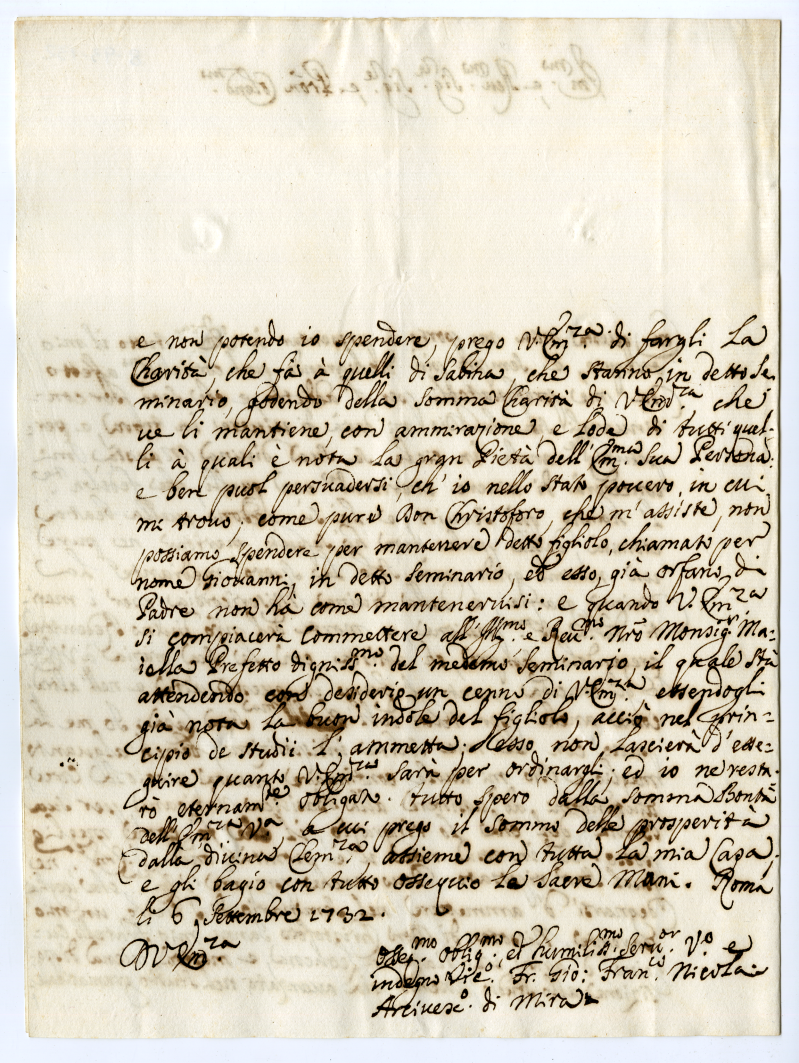 e non potendo io spendere, prego V. Em.za di fargli la
Charità, che fà à quelli di Sabina, che stanno in detto Se,
minario, godendo della somma Charità di V. Em.za che
ve li mantiene, con ammirazione, e lode di tutti quel-
li à quali è nota la gran Pietà dell' Em.ma Sua Persona:
e ben puol persuadersi, ch' io nello stato povero, in cui
mi trovo; come pure Don Christoforo, che m' assiste, non
possiamo spendere per mantenere detto figliolo, chiamato per
nome Giovanni, in detto seminario, ed esso, già orfano di
Padre non hà come mantenervisi: e quando V. Em.za
si compiacerà commettere all' Ill.mo e Reu.mo Nrõ Monsig.r Ma-
iella Prefetto digniss.mo del medemo seminario, il quale stà
attendendo con desiderio un cenno di V. Em.za essendogli
già nota la buon indole del figliolo, acciò nel prin=
cipio de studii l' ammetta; esso non lascierà d' esse=
guire quanto V. Em.za sarà per ordinargli; ed io ne resta-
rò eternam.te obligato. tutto spero dalla somma Bontà
dell' Em.za V.a a cui prego il sommo delle prosperità
dalla divina Clem.za, assieme con tutta la mia Casa,
e gli bagio con tutto ossequio le sacre Mani. Roma
li 6 Settembre 1732.
D V. Em.za
Osseq.mo oblig.mo et humiliss.mo seru.or V.o e
indegno Fr. Gio: Fran.co Nicolai
Arcivesc.o di Mira